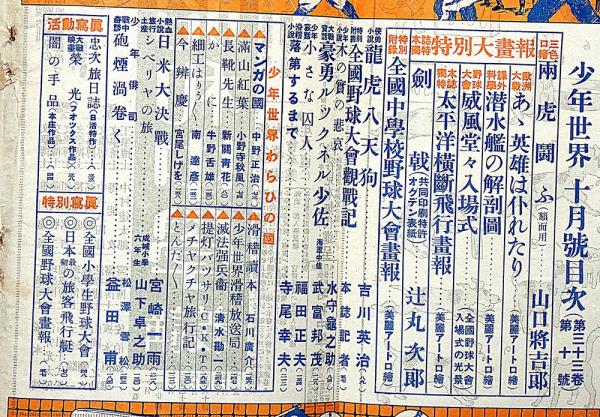 少年世界 十月號目次 第三十三卷 第十號
特別大畫報
三色口繪 兩虎鬪ふ（額面用） 山口將吉郎
歐洲大戰 あゝ英雄は仆れたり（美麗アート口繪）
課外科學 潜水艦の解剖圖（美麗アート口繪）
野球大會 威風堂々入場式（全國野球大會入場式の光景）
本誌獨特 太平洋横斷飛行畫報（美麗アート口繪）
本誌獨特 劍戟（共同印刷特許オクテン表紙） 辻丸次郎
特別附錄 全國中學校野球大會畫報（美麗アート口繪）
龍虎八天狗 吉川英治
全國野球大會觀戰記 本誌記者
木の實の悲哀 水守龜之助
豪勇ルツクネル少佐 海軍中佐 武富邦茂
小さな囚人 福田正夫
落第するまで 寺尾幸夫
少年世界わらひの國
▲マンガの國 中野正治
▲滿山紅葉 小野寺秋風
▲長靴先生 新關青花
▲か に 牛野舌雄
▲細工はりう 南達彦
▲今辨慶 宮尾しげを
▲滑稽讀本 石川廣介
▲少年世界滑稽放送局
▲滅法强兵衞 清水勘一
▲提灯パツサリ C・K・T
▲メチヤクチヤ旅行記
▲とんだ
熱血小說 日米大決戰 宮崎一雨
シベリヤの旅 成城小學六年生 山下卓之
少年俳司 松澤雪松
砲煙渦巻く 益田甫
活動寫眞
忠次旅日誌（日活特作）
榮光（フオツクス作品）
闇の手品（本庄作品）
特別寫眞
◎全國小學生野球大會
◎日本最初の旅客飛行艇
◎全國野球大會畫報